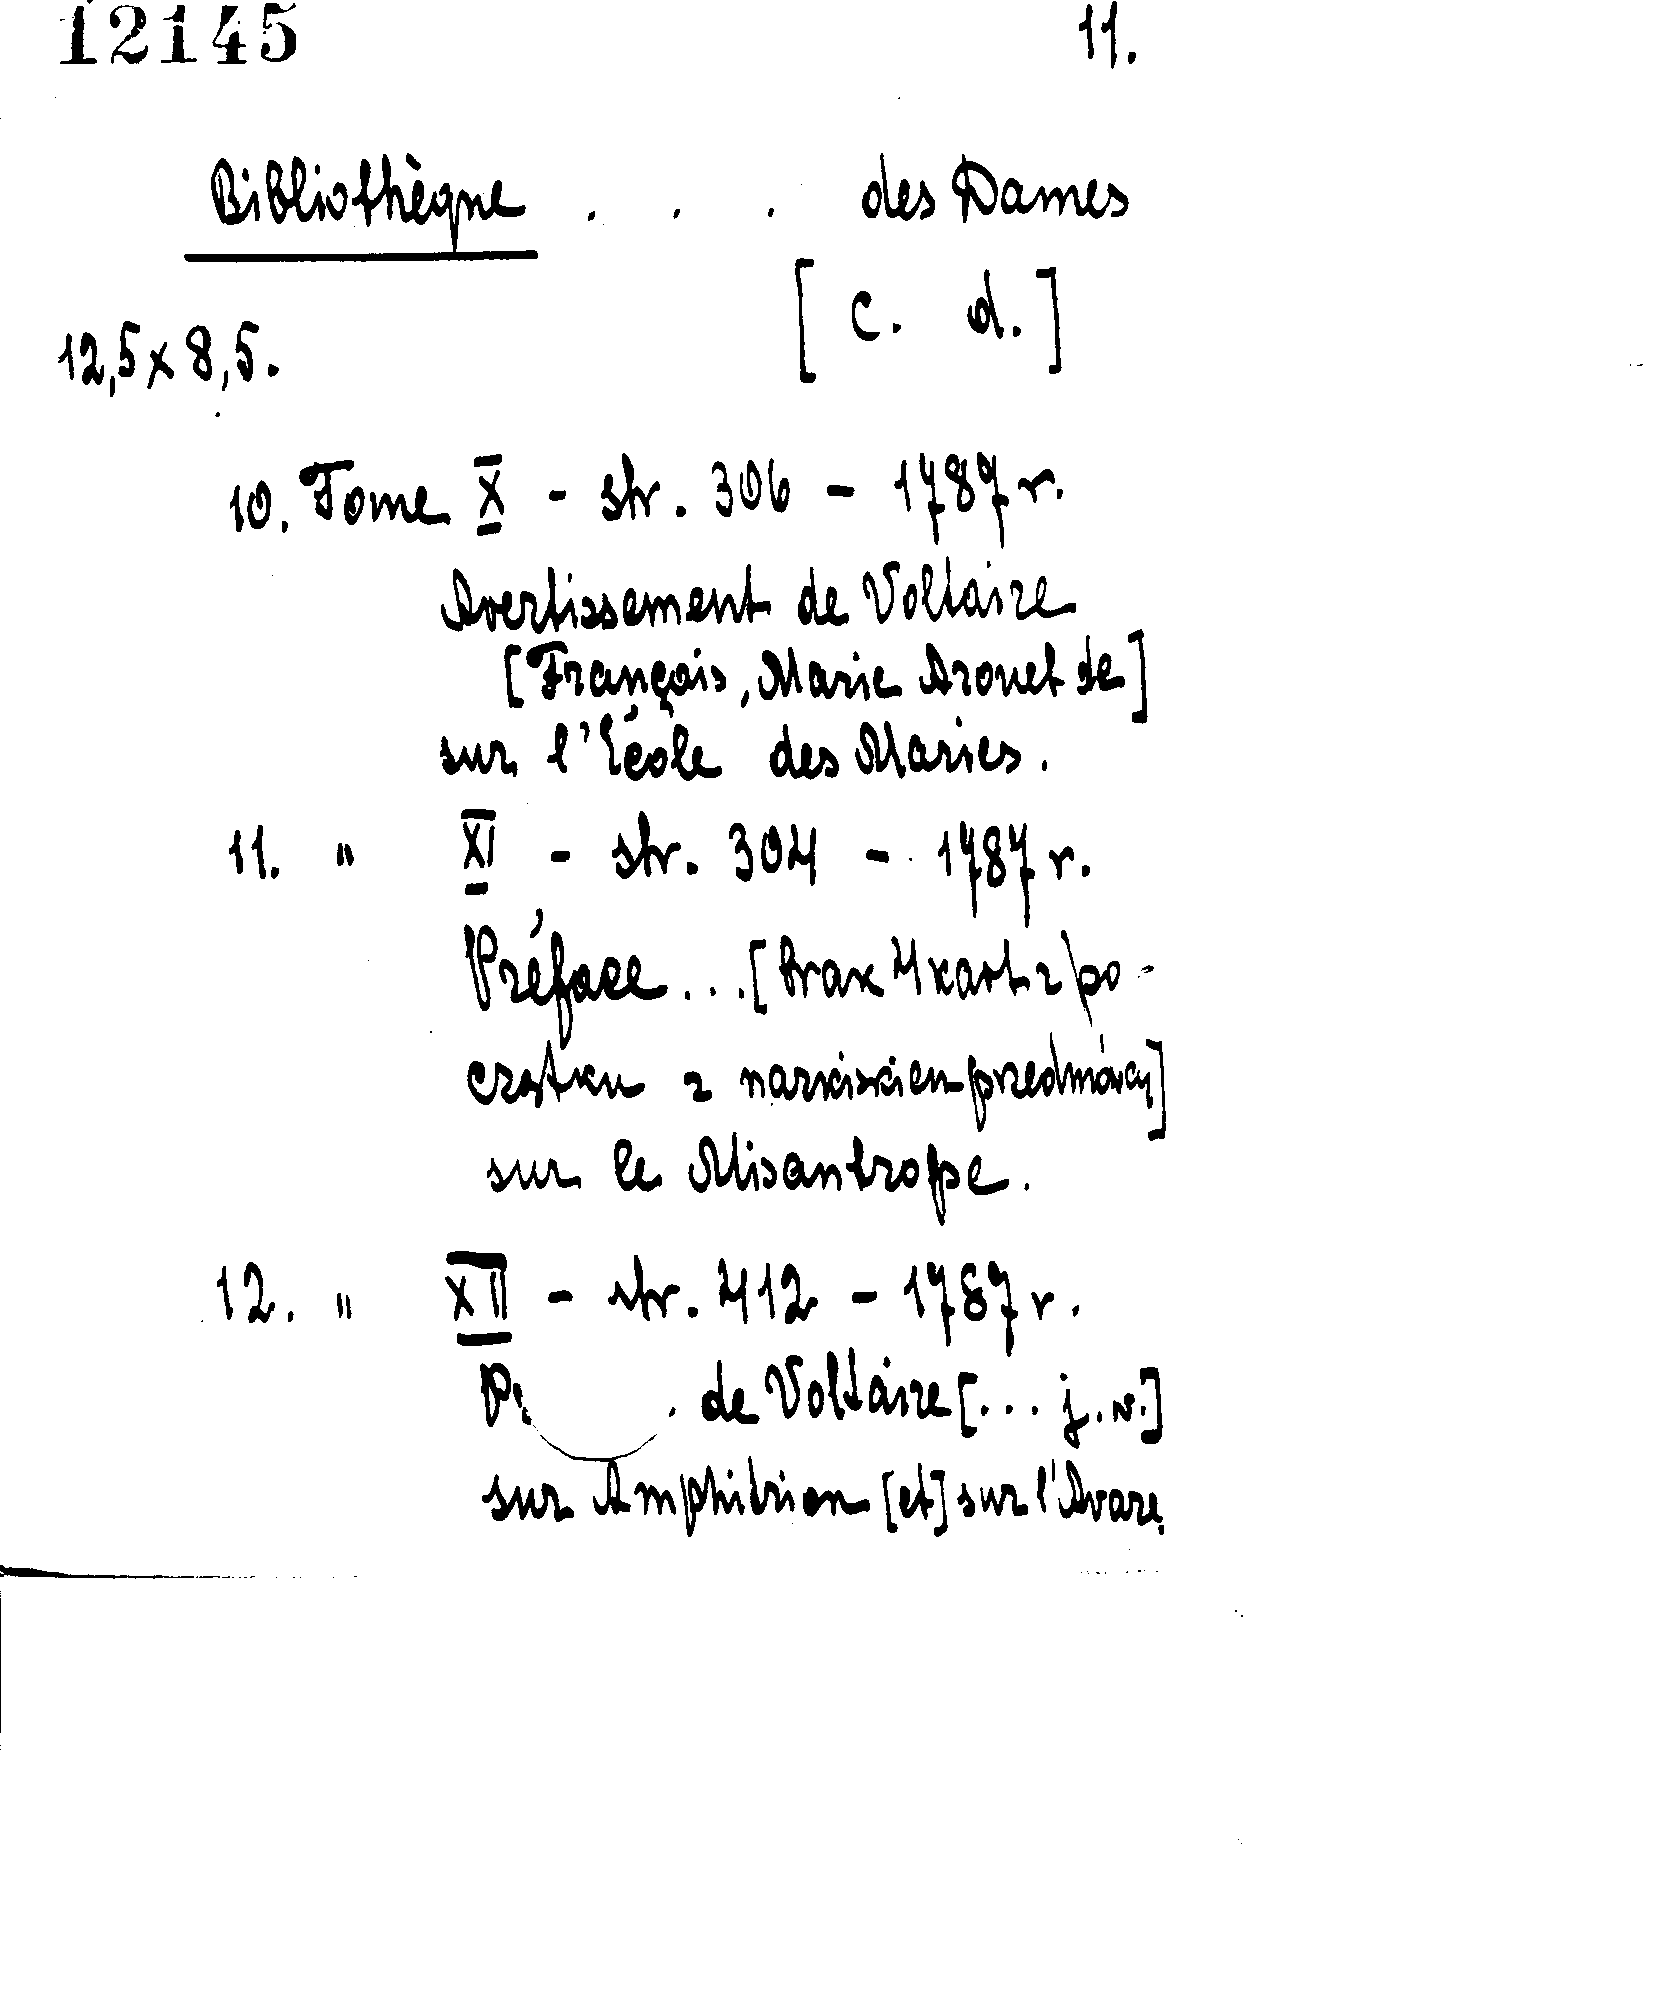 12145 11.
Bibliothèque . . . des Dames
[c. d.]
12,5 x 8,5.
10. Tome X - str. 306 - 1787 r.
Avertissement de Voltaire
[François, Marie Arouet de]
sur l'École des Maries.
11. " XI - str. 304 - 1787 r.
Préface ... [brak 4 kart z po-
czątku z nazwiskiem przedmówcy]
sur le Misantrope.
12. " XII - str. 412 - 1787 r.
de Voltaire [... j.w.]
sur Amphitrion [et] sur l'Avare.